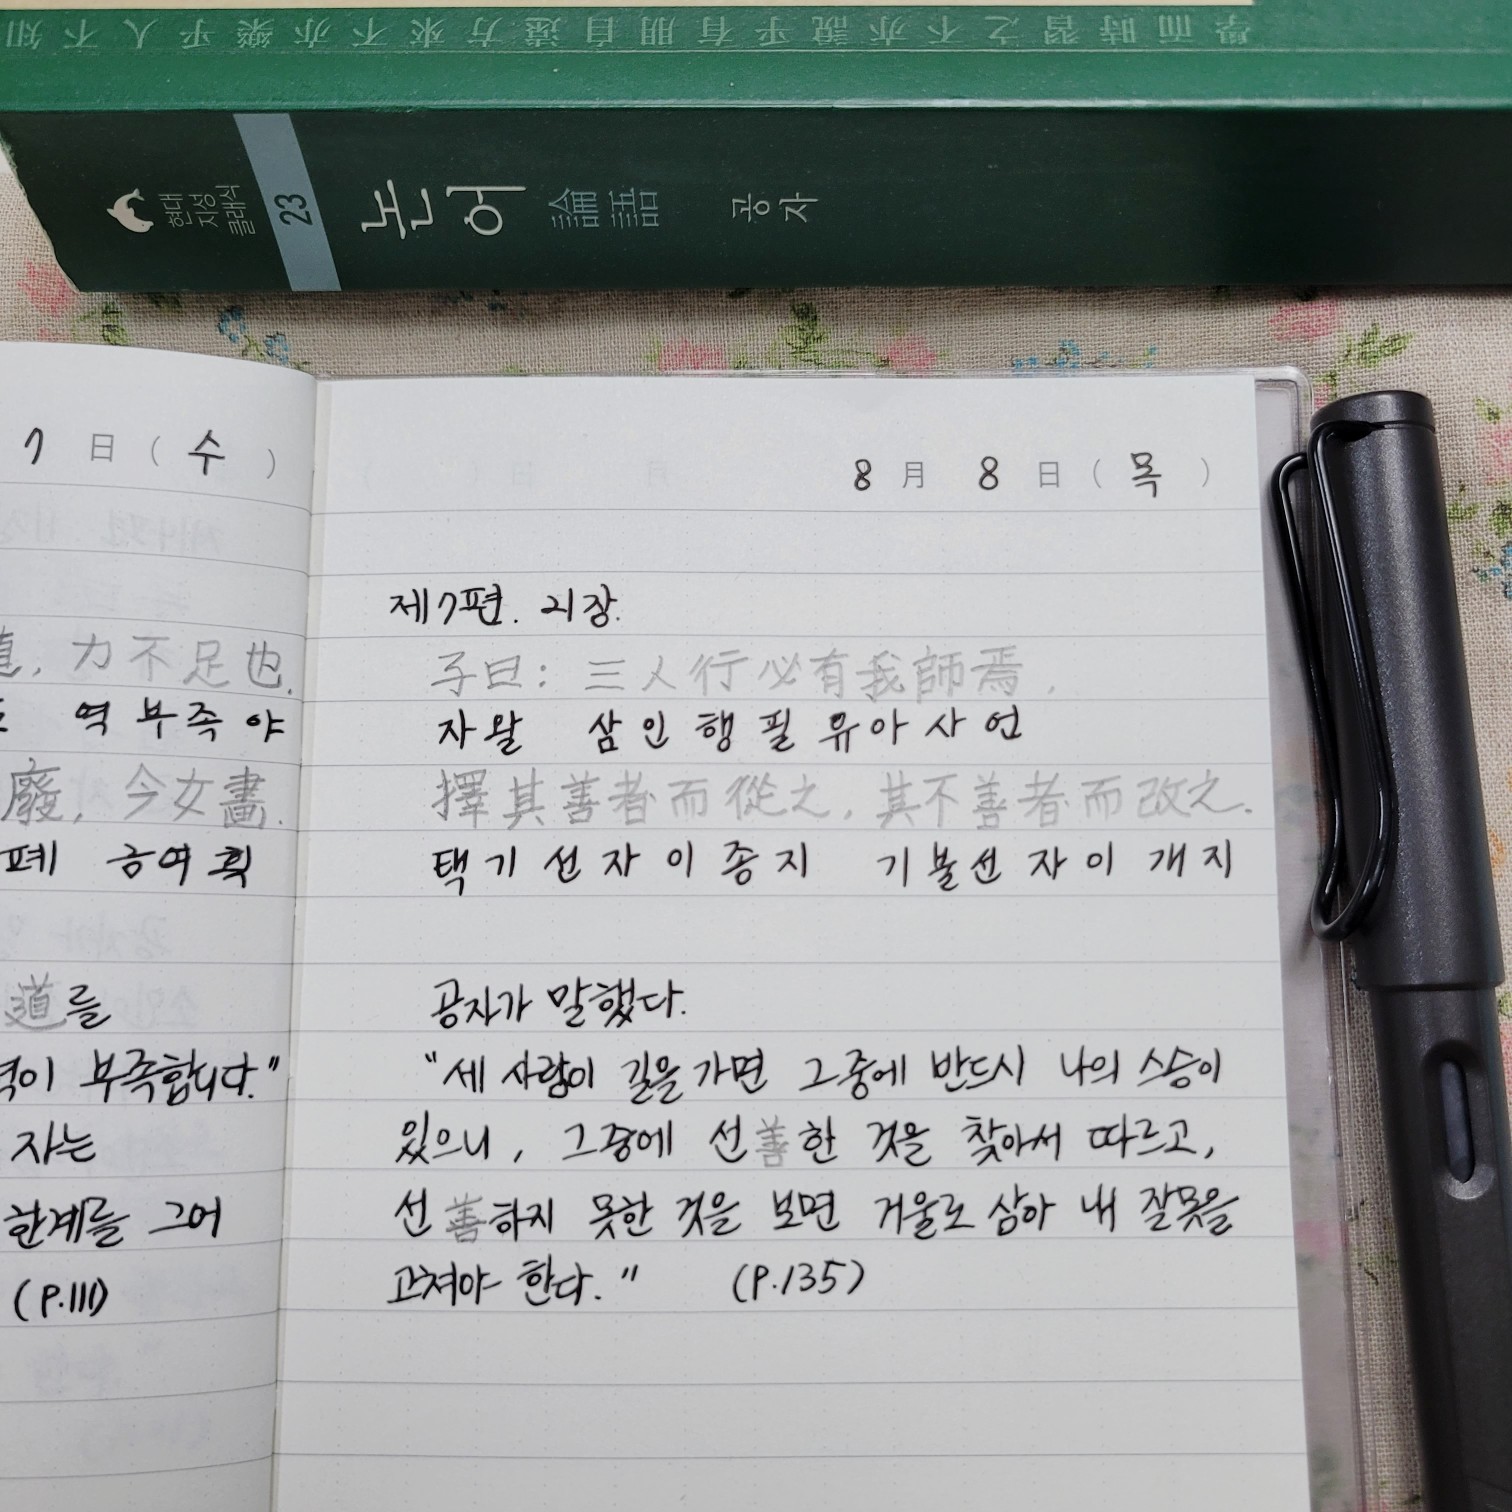 學而時習之不亦說乎有朋自遠方來不亦樂乎人不知
현대
지성
클래식
23
논어 論語 공자
7 日 ( 수 )
力不足也.
역부족야
廢, 今女畫.
폐 금여획
道를
이 부족합니다."
자는
한계를 그어
(P.111)
8 月 8 日 ( 목 )
제7편. 21장.
子曰: 三人行必有我師焉.
자왈 삼인행필유아사언
擇其善者而從之, 其不善者而改之.
택기선자이종지 기불선자이개지
공자가 말했다.
"세 사람이 길을 가면 그중에 반드시 나의 스승이
있으니, 그중에 선善한 것을 찾아서 따르고,
선善하지 못한 것을 보면 거울로 삼아 내 잘못을
고쳐야 한다." (P.135)